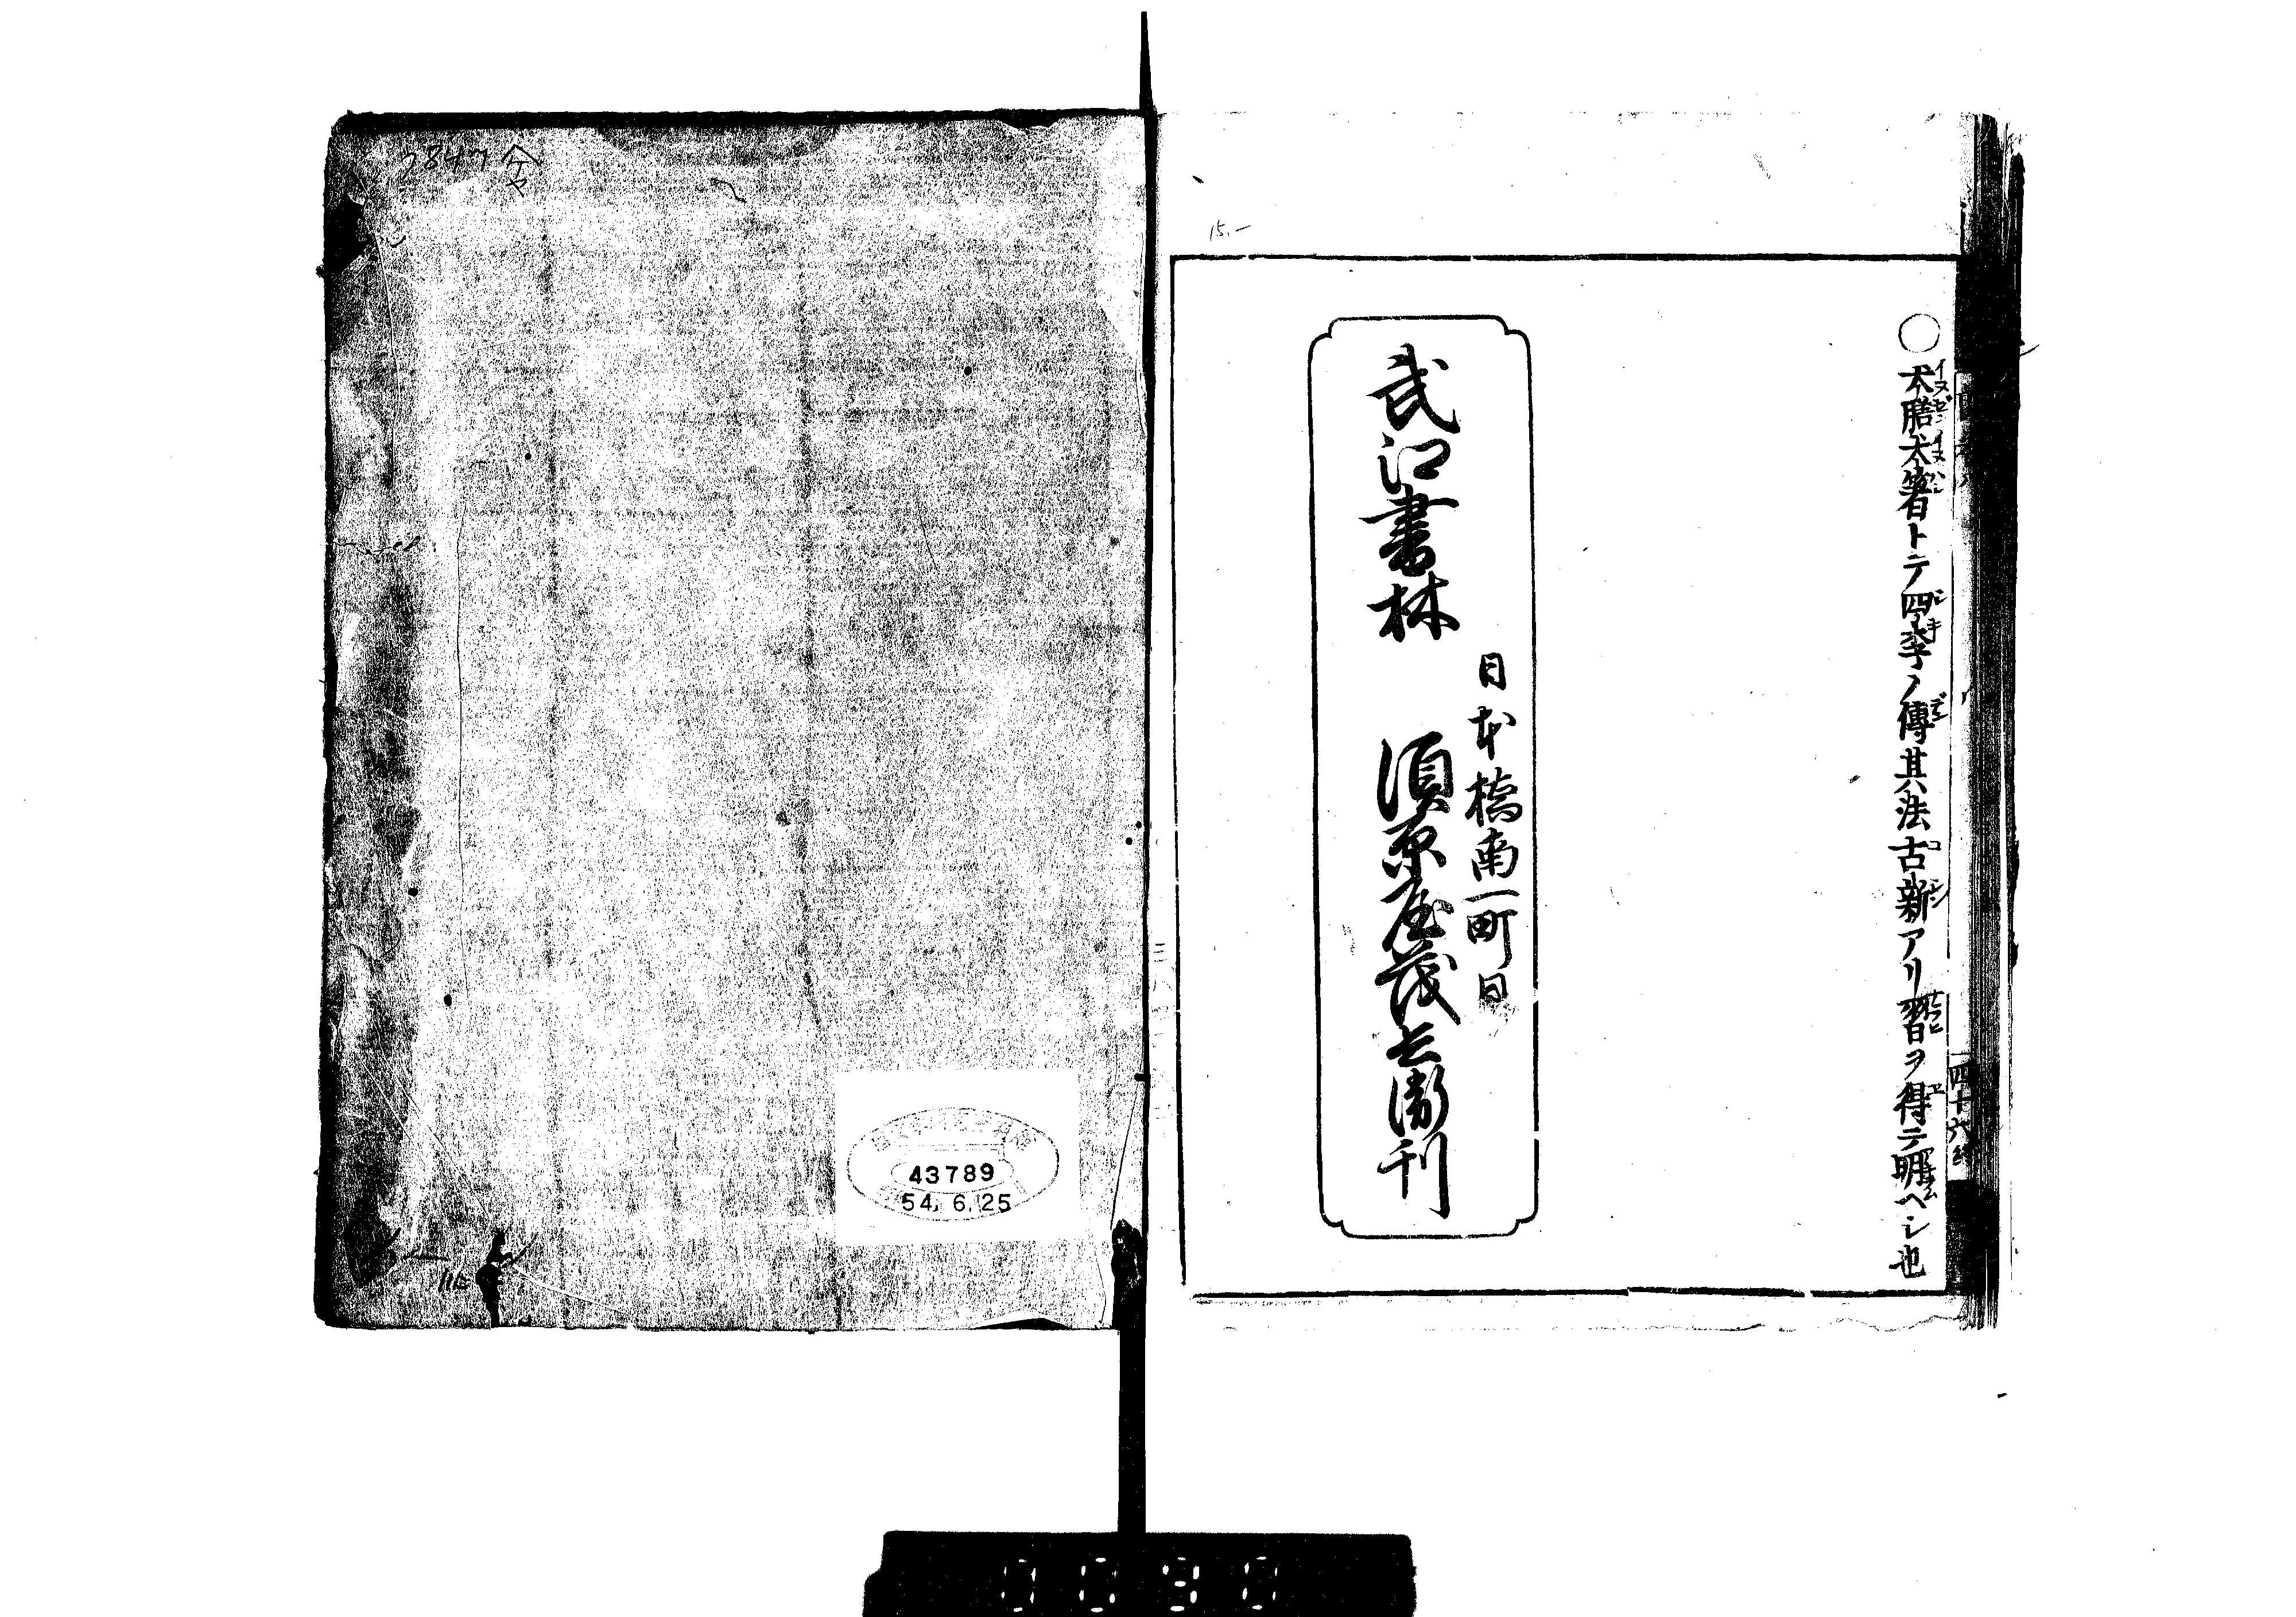 ○犬膳犬箸トテ四季ノ傳其法古新アリ習ヲ得テ明ヘシ也
四十六終
日本橋南一町目
武江書林　須原屋茂兵衛刊
15.-
43789
54. 6. 25